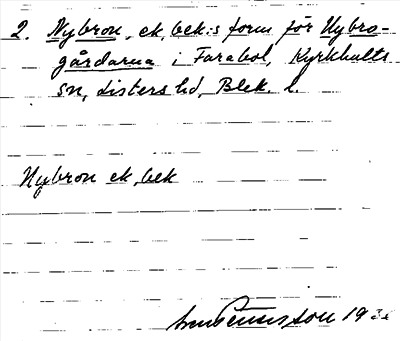 2. Nybron, ek, bek:s form för Nybro-
gårdarna i Farabol, Kyrkhults
sn, Listers hd, Blek. l.
Nybron ek, bek
19